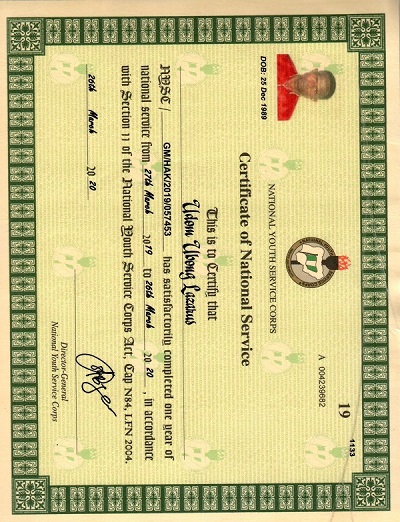 19
1133
A 004239682
NATIONAL YOUTH SERVICE CORPS
Certificate of National Service
DOB: 25 Dec 1989
This is to Certify that
Udom Ubong Lazarus
NYSC/ GM/HAK/2019/057453 has satisfactorily completed one year of
national service from 27th March 2019 to 26th March 2020, in accordance
with Section 11 of the National Youth Service Corps Act, Cap N84, LFN 2004.
26th March 2020
Director-General
National Youth Service Corps